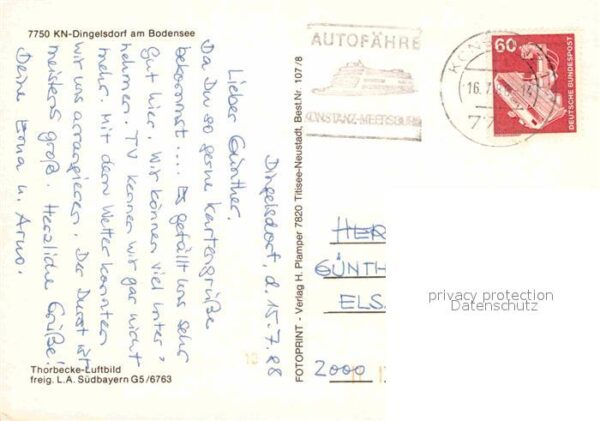 7750 KN-Dingelsdorf am Bodensee
Dingelsdorf, d. 15.7.88
Lieber Günther,
Da Du so gerne Kartengrüße
bekommst.... Es gefällt uns sehr
gut hier. Wir können viel unter-
nehmen. TV kennen wir gar nicht
mehr. Mit dem Wetter konnten
wir uns arrangieren. Der Durst ist
meistens groß. Herzliche Grüße!
Deine Erna u. Arno.
Thorbecke-Luftbild
freig. L.A. Südbayern G5/6763
FOTOPRINT - Verlag H. Plamper 7820 Titisee-Neustadt, Best.Nr. 107/8
AUTOFÄHRE
KONSTANZ-MEERSBURG
KONS
16.7. -14
77
60
DEUTSCHE BUNDESPOST
HER
GÜNTH
ELS
2000
privacy protection
Datenschutz